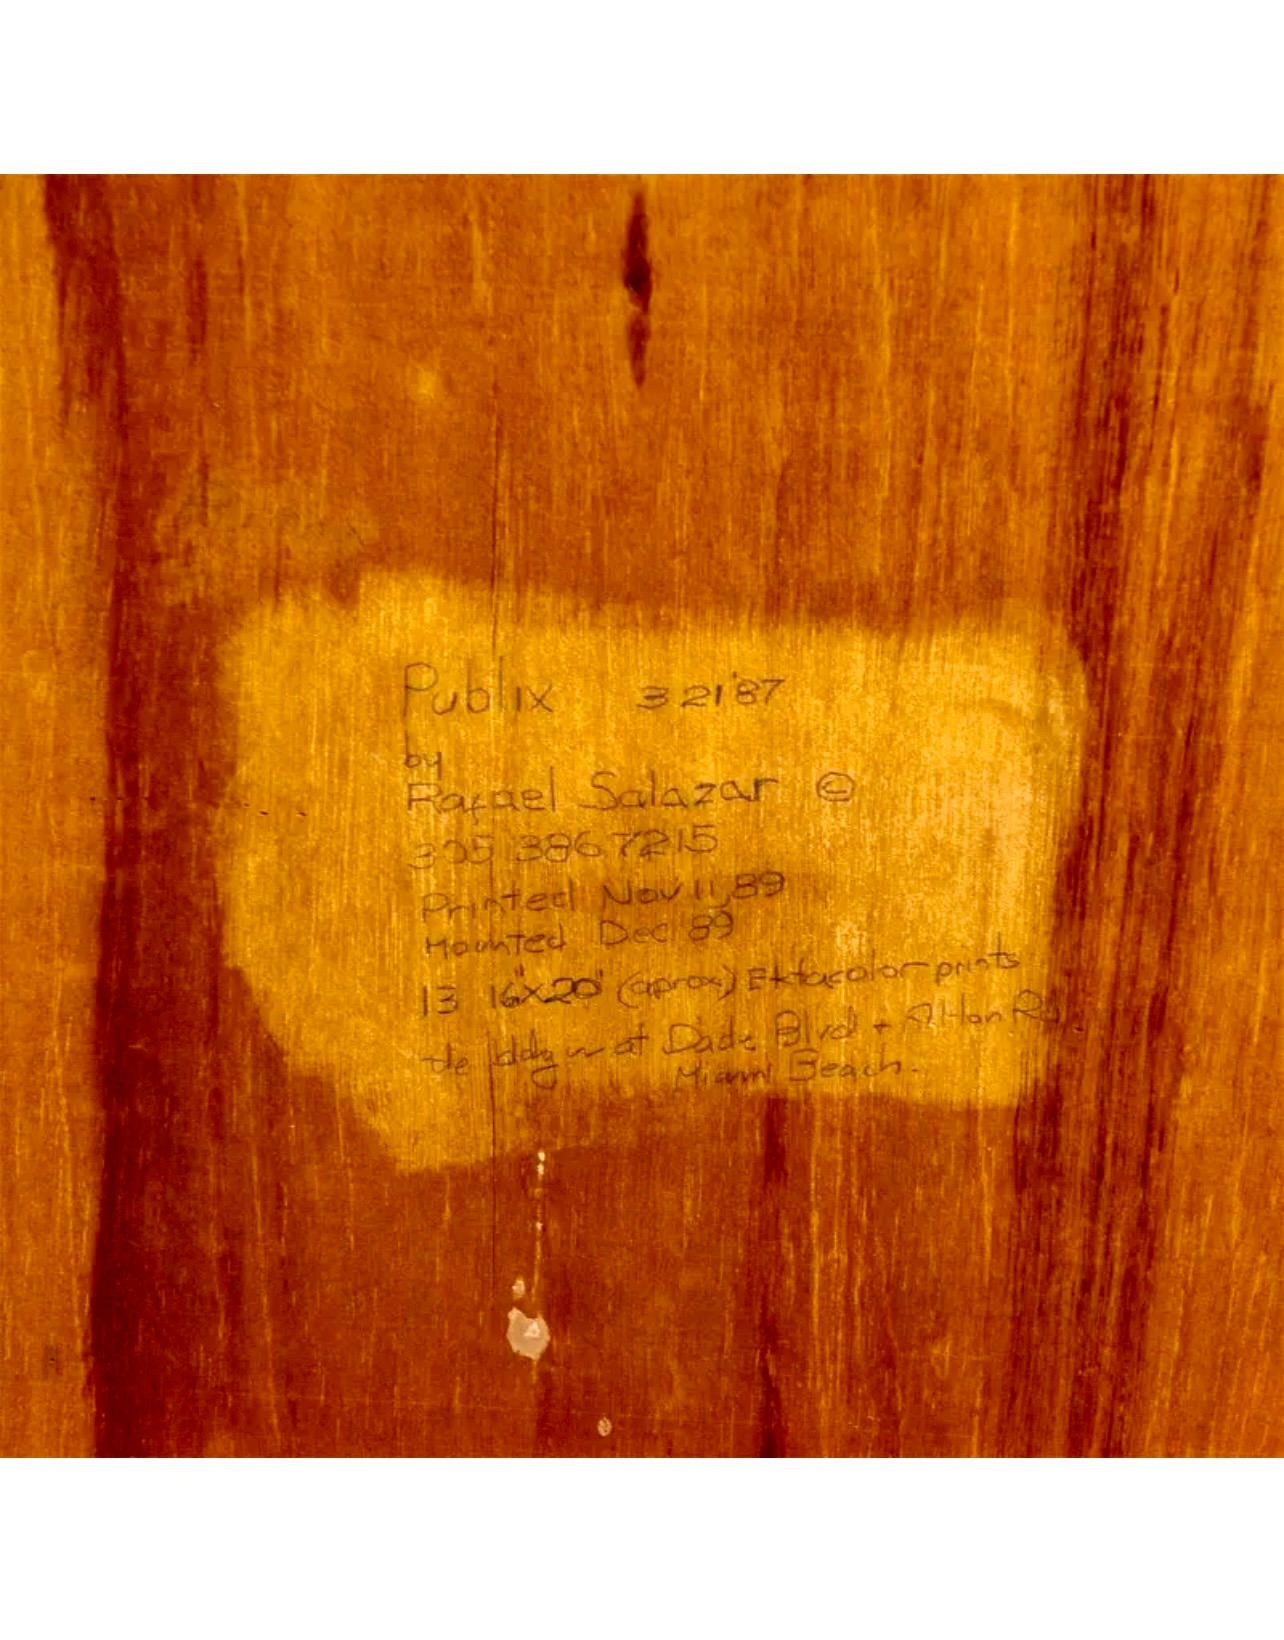 Publix 3 21'87
by
Rafael Salazar ©
305 386 7215
Printed Nov 11, 89
Mounted Dec 89
13 16"x20" (aprox) Ektacolor prints
the bldg is at Dade Blvd + Alton Rd.
Miami Beach.